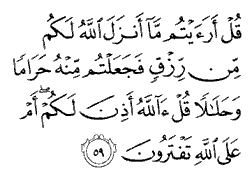 قُلْ أَرَءَيْتُم مَّآ أَنزَلَ ٱللَّهُ لَكُم
مِّن رِّزْقٍ فَجَعَلْتُم مِّنْهُ حَرَامًا
وَحَلَٰلًا قُلْ ءَآللَّهُ أَذِنَ لَكُمْ ۖ أَمْ
عَلَى ٱللَّهِ تَفْتَرُونَ ٥٩